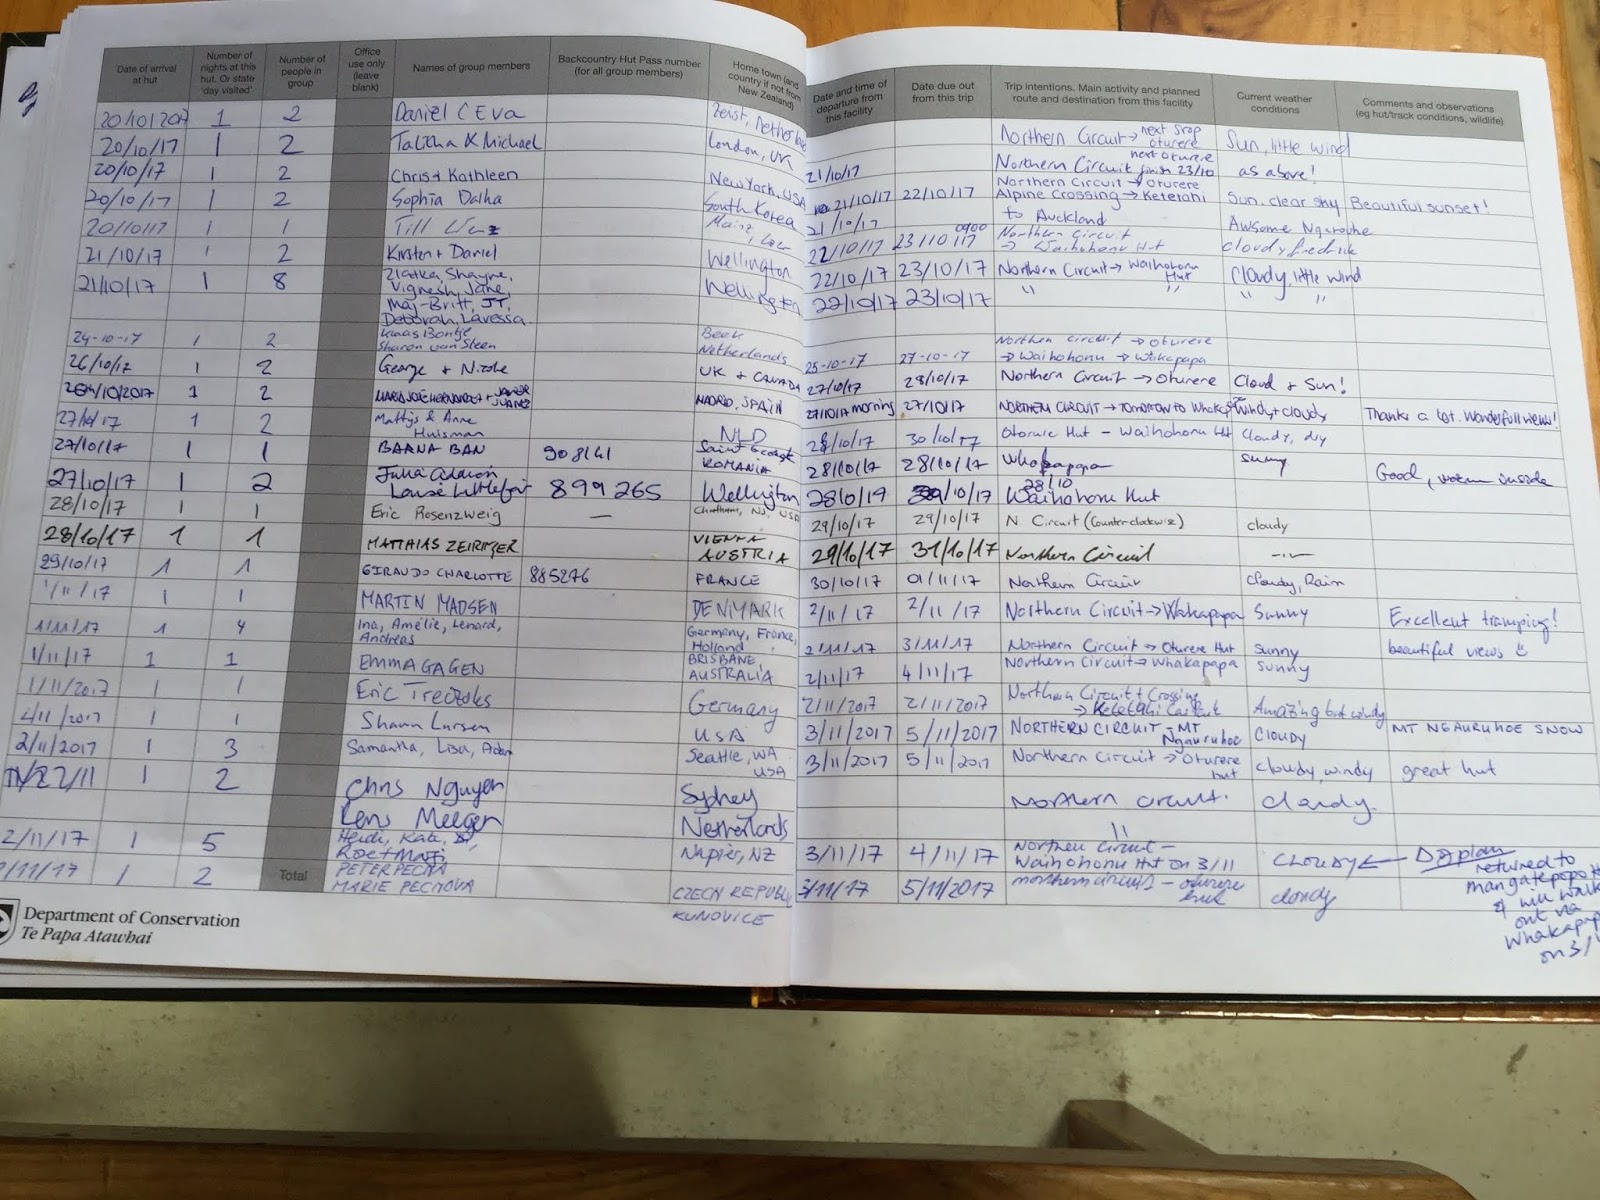 Date of arrival at hut
Number of nights at this hut. Or state 'day visited'
Number of people in group
Office use only (leave blank)
Names of group members
Backcountry Hut Pass number (for all group members)
Home town (and country if not from New Zealand)
Date and time of departure from this facility
Date due out from this trip
Trip intentions. Main activity and planned route and destination from this facility
Current weather conditions
Comments and observations (eg hut/track conditions, wildlife)
20/10/2017 1 2 Daniel & Eva Zeist, Netherlands Northern Circuit → next stop oturere Sun, little wind
20/10/17 1 2 Talitha & Michael London, UK 21/10/17 Northern Circuit next oturere finish 23/10 as above!
20/10/17 1 2 Chris + Kathleen New York, USA 21/10/17 22/10/17 Northern Circuit → Oturere Sun, clear sky Beautiful sunset!
20/10/17 1 2 Sophia Dalha South Korea 21/10/17 Alpine Crossing → Ketetahi to Auckland Awsome
20/10/17 1 1 Till Mainz 22/10/17 23/10/17 0900 Northern Circuit → Waihohonu Hut cloudy
21/10/17 1 2 Kirsten + Daniel Wellington 22/10/17 23/10/17 Northern Circuit → Waihohonu Hut Cloudy, little wind
21/10/17 1 8 Zlatka, Shayne, Vignesh, Jane, Maj-Britt, JT, Deborah, Laressa Wellington 22/10/17 23/10/17 " " " "
24-10-17 1 2 Klaas Bontje Sharon van Steen Beek Netherlands 25-10-17 27-10-17 Northern circuit → oturere → Waihohonu → Wakapapa
26/10/17 1 2 George + Nicole UK + CANADA 27/10/17 28/10/17 Northern Circuit → Oturere Cloud + Sun!
26/10/2017 1 2 MARIA JOSÉ HERNANDEZ + JAVIER JUANEZ MADRID, SPAIN 27/10/17 morning 27/10/17 NORTHERN CIRCUIT → TOMORROW TO WHAKAP Windy + cloudy Thanks a lot. Wonderfull views!
27/10/17 1 2 Mattijs & Anne Huisman NLD 28/10/17 30/10/17 Oturure Hut - Waihohonu Hut Cloudy, dry
27/10/17 1 1 BARNA BAN 908141 Saint George ROMANIA 28/10/17 28/10/17 Whakapapa sunny Good, warm inside
27/10/17 1 2 Julia Louise 899265 Wellington 28/10/17 /10/17 28/10 Waihohonu Hut
28/10/17 1 1 Eric Rosenzweig — Chatham, NJ, USA 29/10/17 29/10/17 N. Circuit (Counterclockwise) cloudy
28/10/17 1 1 MATTHIAS ZEIRITZER VIENNA AUSTRIA 29/10/17 31/10/17 Northern Circuit -"-
29/10/17 1 1 GIRAUDO CHARLOTTE 885276 FRANCE 30/10/17 01/11/17 Northern Circuit Cloudy, Rain
1/11/17 1 1 MARTIN MADSEN DENMARK 2/11/17 2/11/17 Northern Circuit → Wakapapa Sunny Excellent tramping!
1/11/17 1 4 Ina, Amélie, Lenard, Andreas Germany, France, Holland 2/11/17 3/11/17 Northern Circuit → Oturere Hut sunny beautiful views
1/11/17 1 1 EMMA GAGEN BRISBANE, AUSTRALIA 2/11/17 4/11/17 Northern Circuit → Whakapapa sunny
1/11/2017 1 1 Eric Germany 2/11/2017 2/11/2017 Northern Circuit + Crossing → Ketetahi Carpark Amazing but windy
2/11/2017 1 1 Shawn Larsen USA 3/11/2017 5/11/2017 NORTHERN CIRCUIT, MT Ngauruhoe CLOUDY MT NGAURUHOE SNOW
2/11/2017 1 3 Samantha, Lisa, Adam Seattle, WA USA 3/11/2017 5/11/2017 Northern Circuit → Oturere hut cloudy, windy great hut
2/11 1 2 Chris Nguyen Sydney Northern circuit. cloudy.
Rens Meeger Netherlands "
2/11/17 1 5 Heidi, Kate, Napier, NZ 3/11/17 4/11/17 Northern Circuit - Waihohonu Hut on 3/11 CLOUDY ← DB plan returned to mangatepopo & will walk out via Whakapapa on 3/
2/11/17 1 2 PETER PECHA MARIE PECHOVA CZECH REPUBLIC KUNOVICE 3/11/17 5/11/2017 northern circuit - oturere hut cloudy
Total
Department of Conservation
Te Papa Atawhai